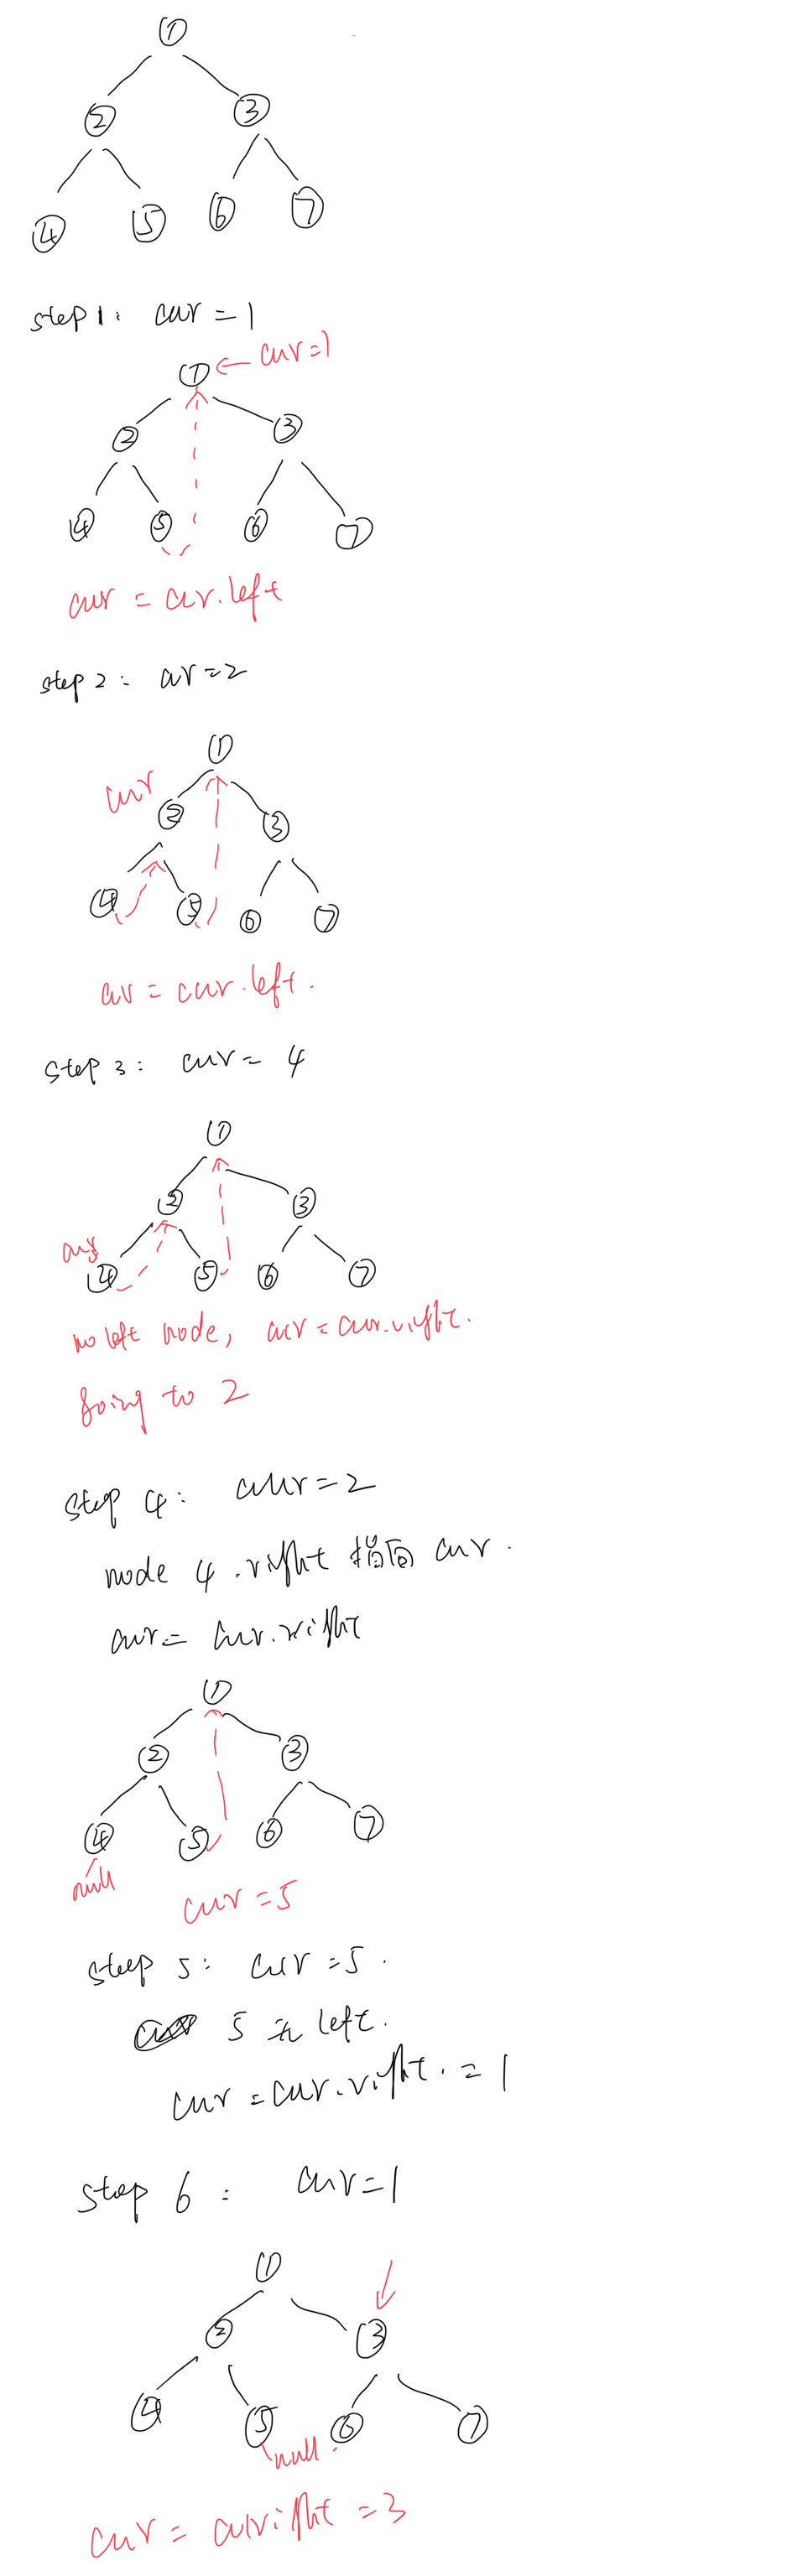 1
2 3
4 5 6 7
step 1: cur = 1
1 ← cur=1
2 3
4 5 6 7
cur = cur.left
step 2: cur=2
1
cur
2 3
4 5 6 7
cur = cur.left.
step 3: cur = 4
1
2 3
cur
4 5 6 7
no left node, cur = cur.right.
going to 2
step 4: cur=2
node 4.right 指向 cur.
cur = cur.right
1
2 3
4 5 6 7
null
cur = 5
step 5: cur = 5.
5 无 left.
cur = cur.right. = 1
step 6: cur=1
1
2 3
4 5 6 7
null
cur = curright = 3